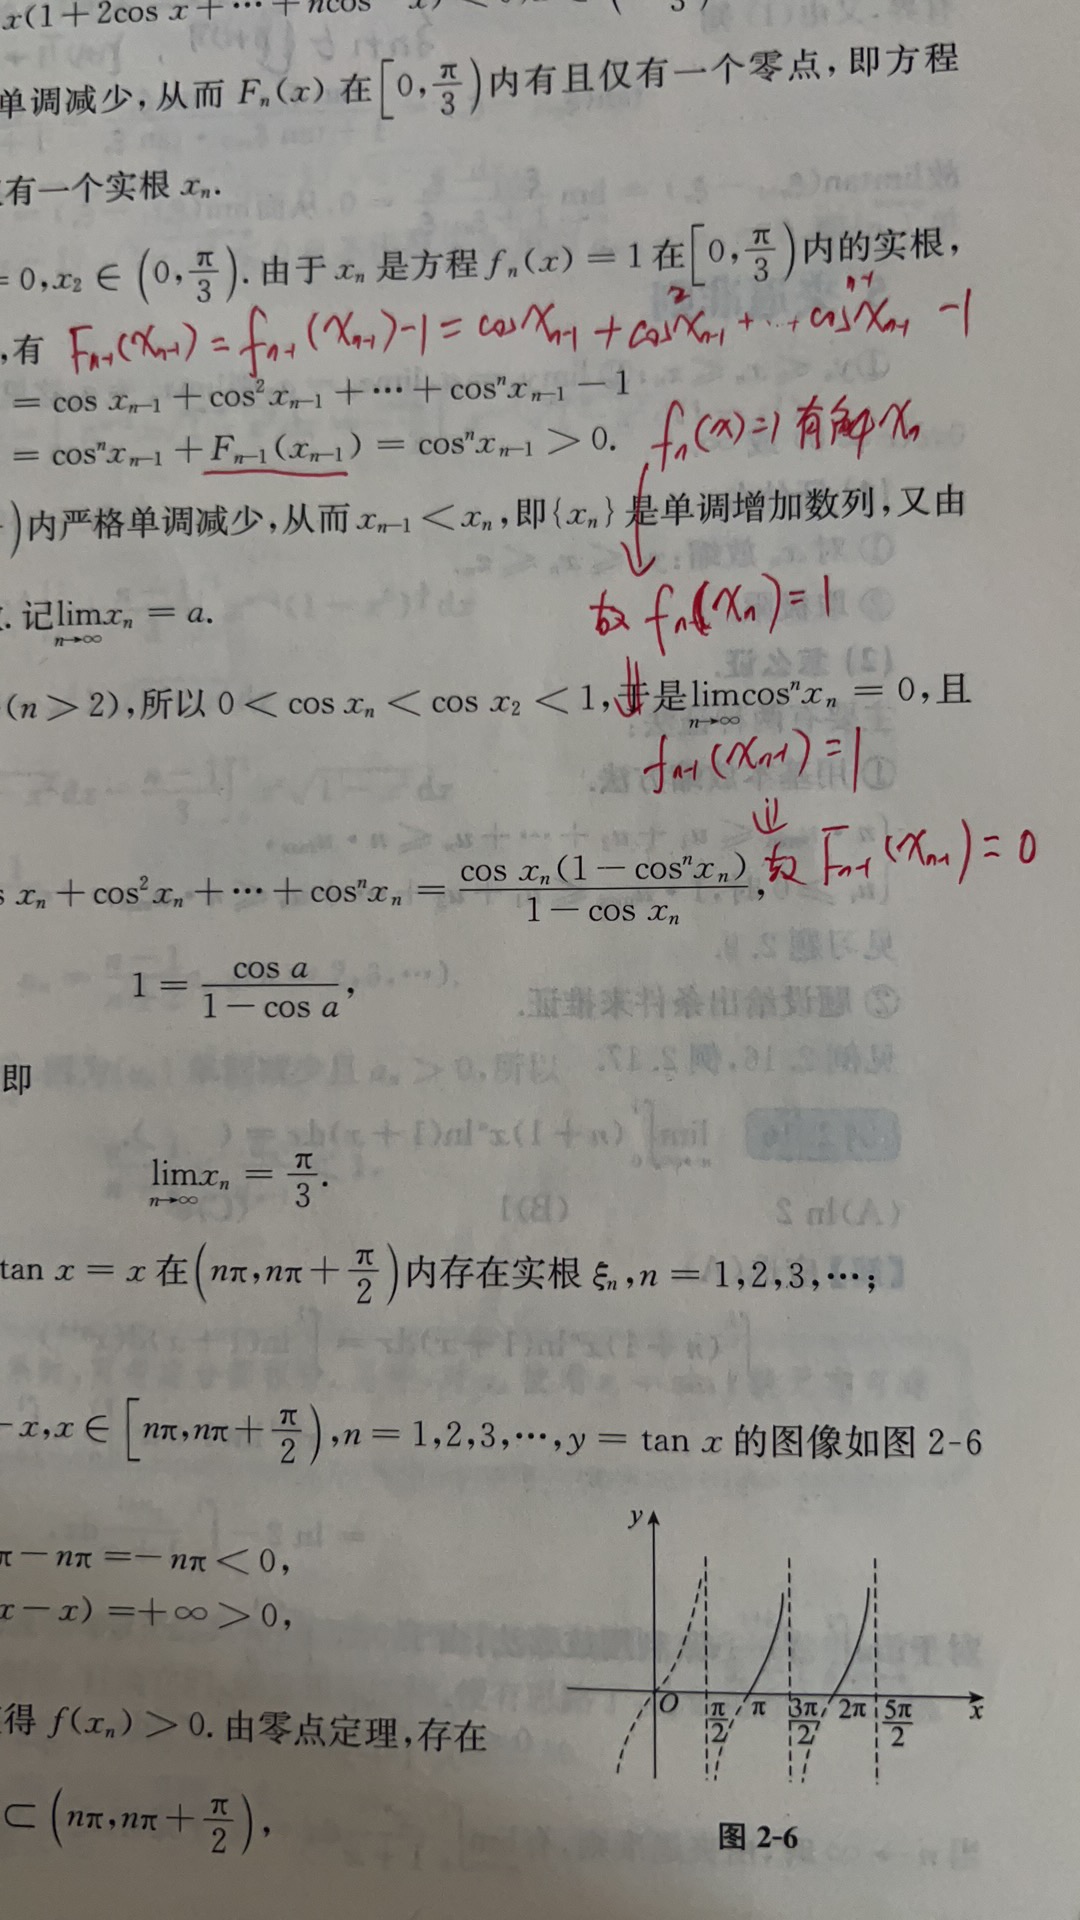 x(1+2cos x+⋯+ncos
单调减少,从而 Fₙ(x) 在[0,π/3)内有且仅有一个零点,即方程
有一个实根 xₙ.
=0,x₂∈(0,π/3).由于 xₙ 是方程 fₙ(x)=1在[0,π/3)内的实根,
,有 Fₙ₋₁(xₙ₋₁)=fₙ₋₁(xₙ₋₁)-1=cosxₙ₋₁+cos²xₙ₋₁+⋯+cosⁿ⁻¹xₙ₋₁-1
=cos xₙ₋₁+cos²xₙ₋₁+⋯+cosⁿxₙ₋₁-1
fₙ(x)=1有解xₙ
=cosⁿxₙ₋₁+Fₙ₋₁(xₙ₋₁)=cosⁿxₙ₋₁>0.
)内严格单调减少,从而xₙ₋₁<xₙ,即{xₙ}是单调增加数列,又由
故 fₙ(xₙ)=1
.记lim xₙ=a.
n→∞
(n>2),所以0<cos xₙ<cos x₂<1,于是lim cosⁿxₙ=0,且
n→∞
fₙ₋₁(xₙ₋₁)=1
故 Fₙ₋₁(xₙ₋₁)=0
s xₙ+cos²xₙ+⋯+cosⁿxₙ=cos xₙ(1-cosⁿxₙ)/(1-cos xₙ),
1=cos a/(1-cos a),
即
lim xₙ=π/3.
n→∞
tan x=x在(nπ,nπ+π/2)内存在实根 ξₙ,n=1,2,3,⋯;
-x,x∈[nπ,nπ+π/2),n=1,2,3,⋯,y=tan x的图像如图2-6
π-nπ=-nπ<0,
x-x)=+∞>0,
得 f(xₙ)>0.由零点定理,存在
⊂(nπ,nπ+π/2),
y
O π/2 π 3π/2 2π 5π/2 x
图2-6